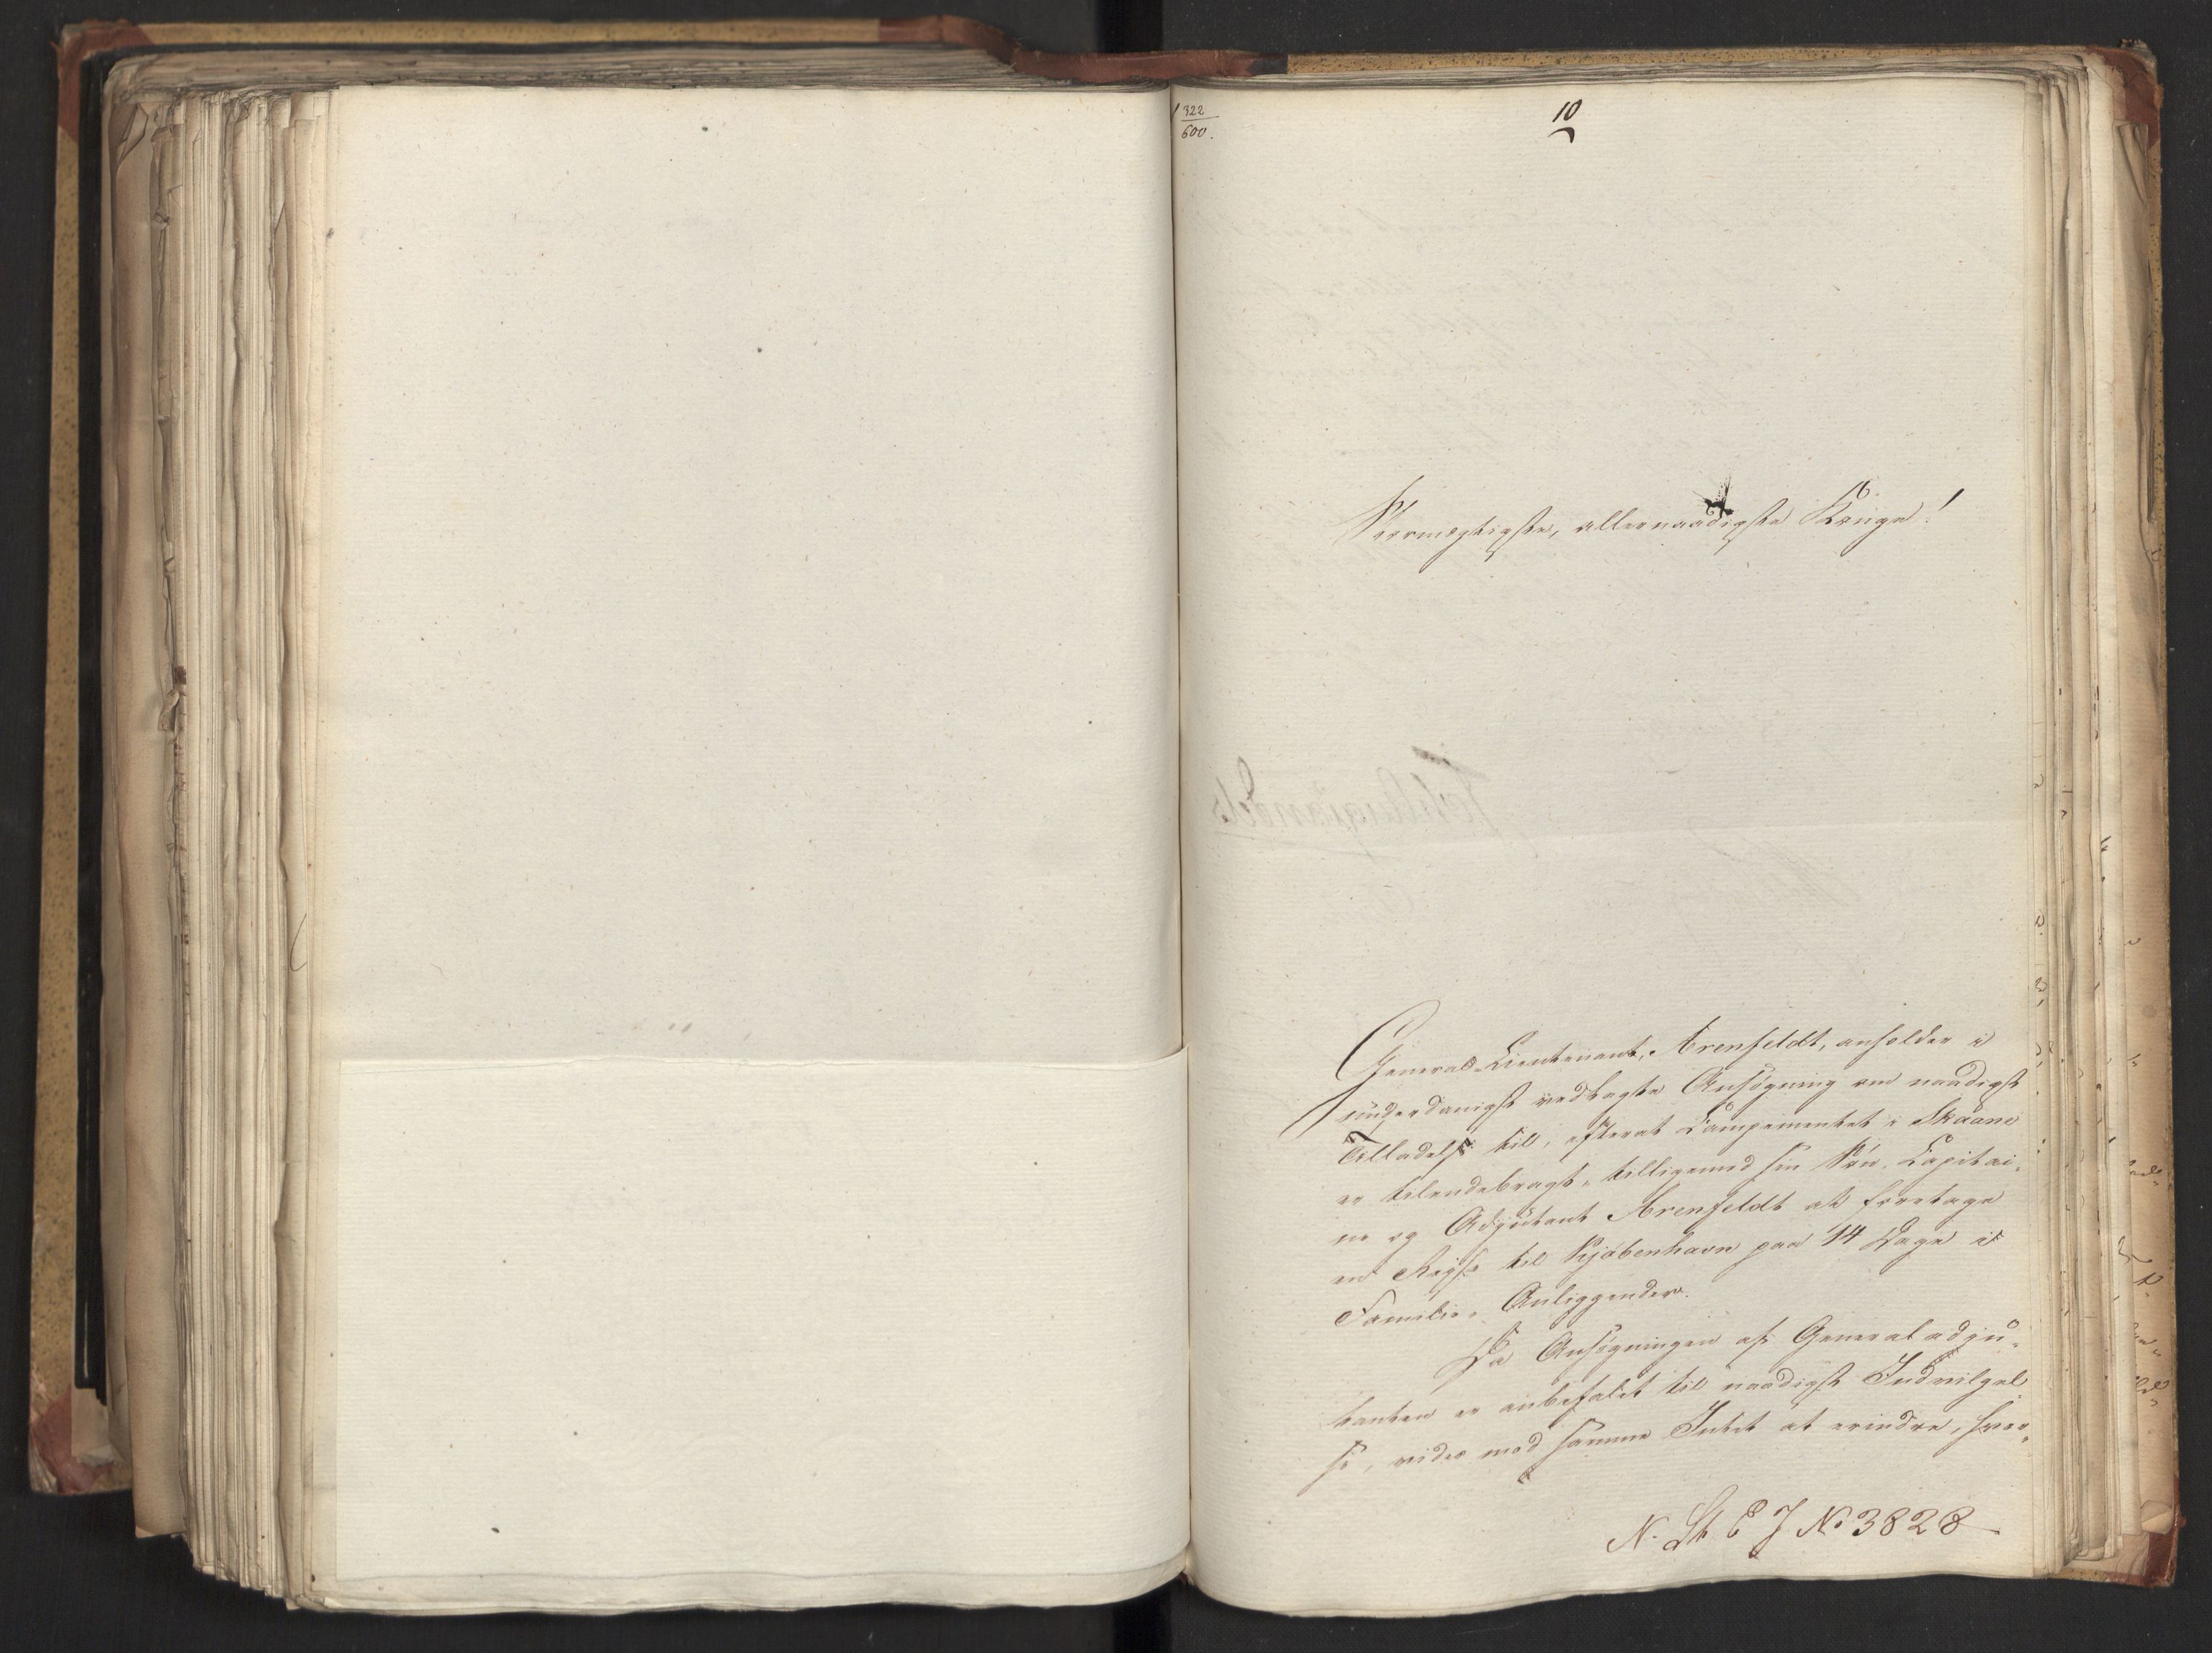 322
600.
10
Stormægtigste, allernaadigste Konge!
General-Lieutenant, Arenfeldt, anholder i
underdanigst vedlagte Ansögning om naadigst
Tilladelse til, efterat Campementet i Skaane
er tilendebragt, tilligemed sin Sön, Capitai-
ne og Adjutant Arenfeldt at foretage
en Reise til Kjöbenhavn paa 14 Dage i
Familie-Anliggender.
Da Ansögningen af Generaladju-
tanten er anbefalet til naadigst Indvilgel-
se, vides mod samme Intet at erindre, hvor-
N. St E J No 3828